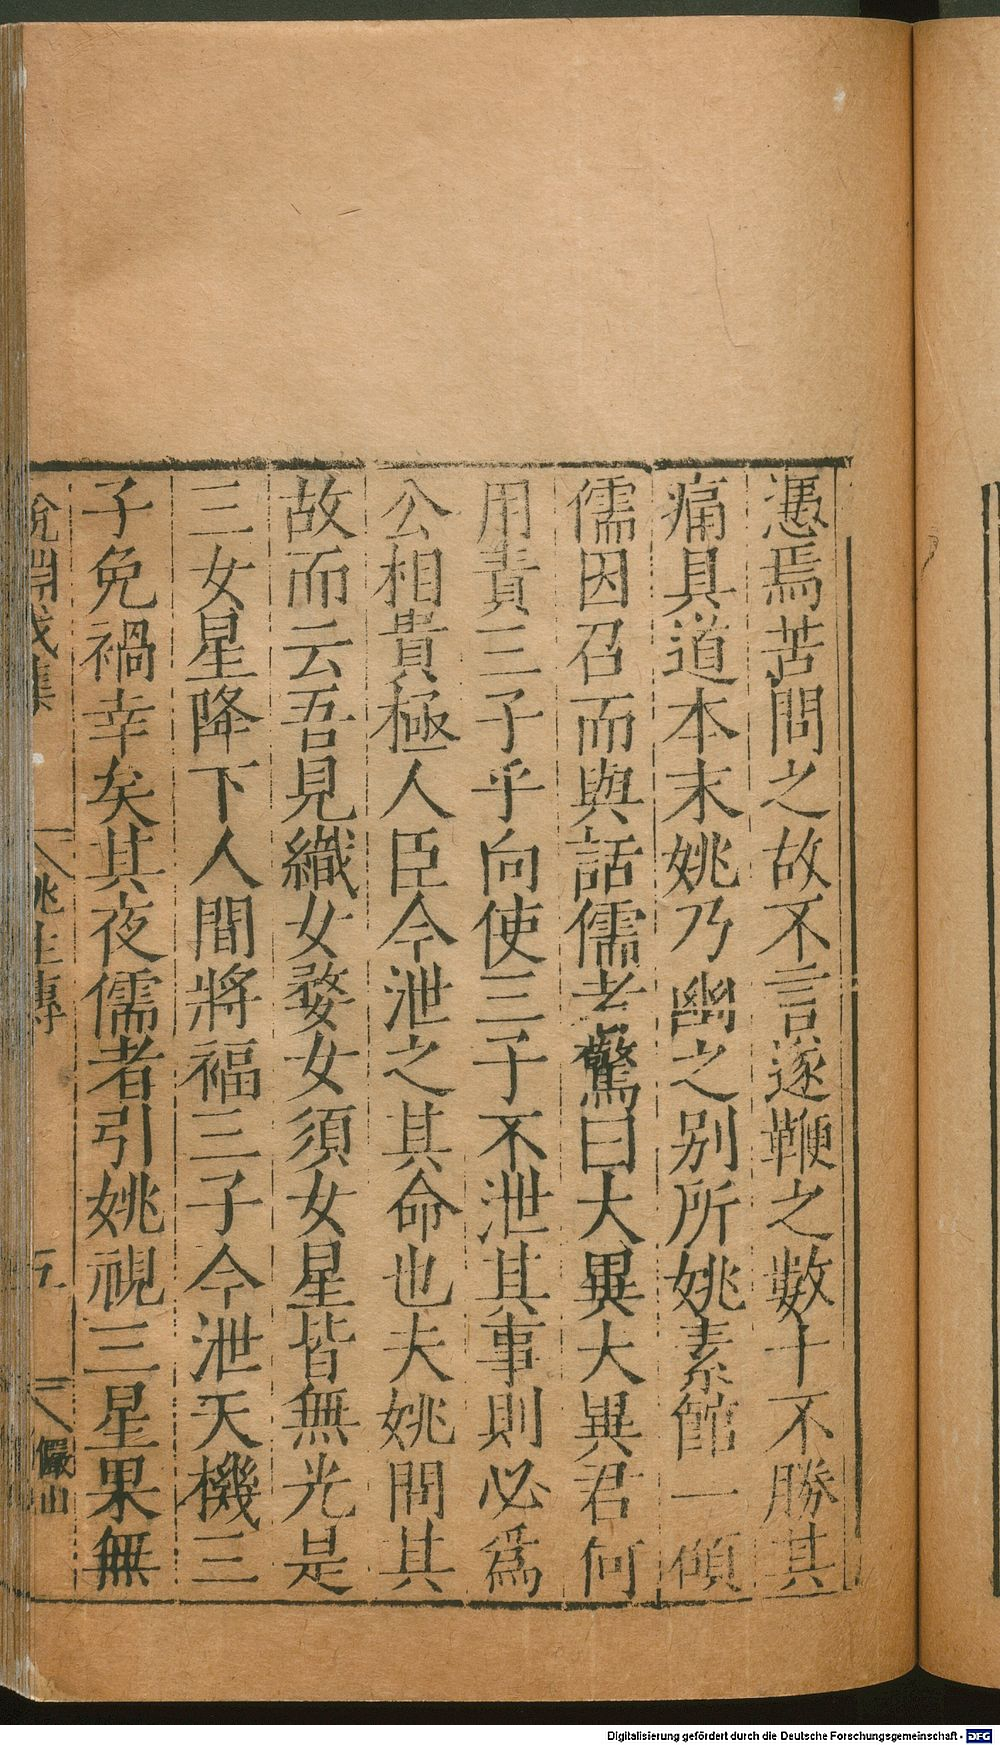 憑焉苦問之故不言遂鞭之數十不勝其
痛具道本末姚乃幽之别所姚素館一碩
儒因召而與話儒者驚曰大異大異君何
用責三子乎向使三子不泄其事則必爲
公相貴極人臣今泄之其命也夫姚問其
故而云吾見織女婺女須女星皆無光是
三女星降下人間將福三子今泄天機三
子免禍幸矣其夜儒者引姚視三星果無
說淵戊集
姚生傳
五
儼山
Digitalisierung gefördert durch die Deutsche Forschungsgemeinschaft - DFG